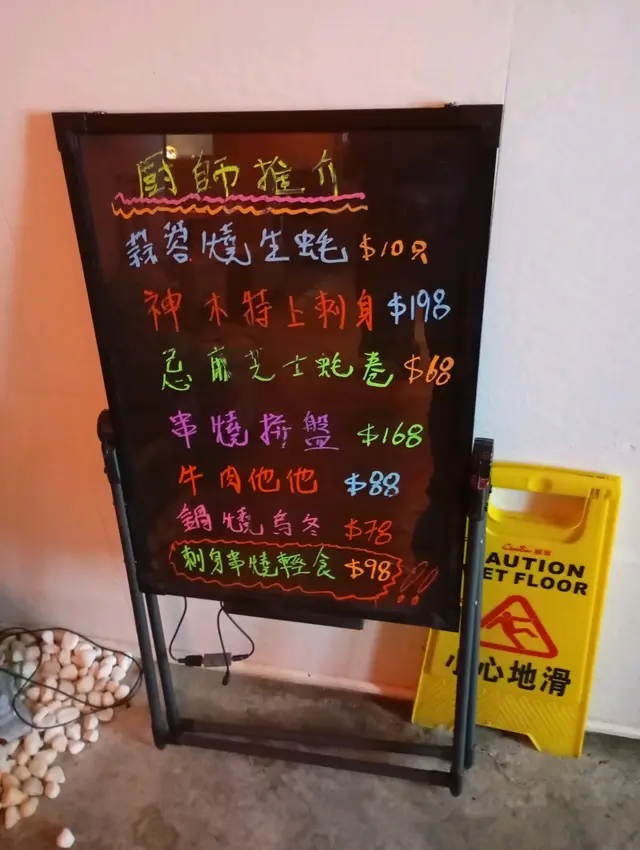 厨師推介
蒜蓉燒生蚝 $108
神木特上刺身 $198
忌廉芝士蚝卷 $68
串燒拼盤 $168
牛肉他他 $88
鍋燒烏冬 $78
刺身串燒輕食 $98 !!
AUTION
ET FLOOR
小心地滑